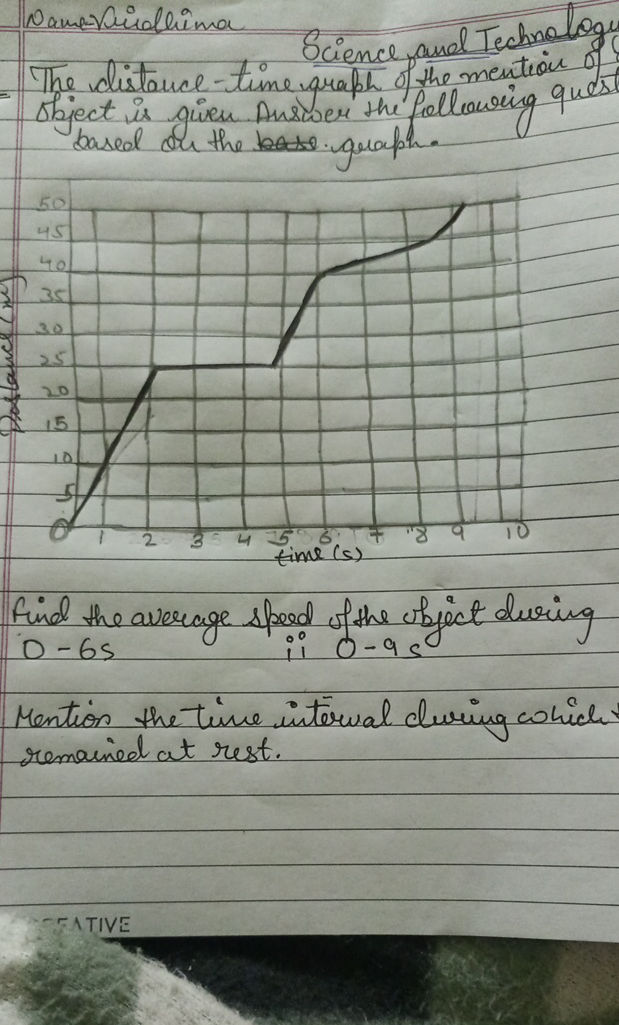 Name Viridhima
Science and Technology
The distance-time graph of the mention of
object is given Answer the following quest
based on the graph.
50
45
40
35
30
25
20
15
10
5
0 1 2 3 4 5 6 7 8 9 10
time (s)
Distance (m)
find the average speed of the object during
0-6s ii 0-9s
Mention the time interval during which
remained at rest.
EATIVE